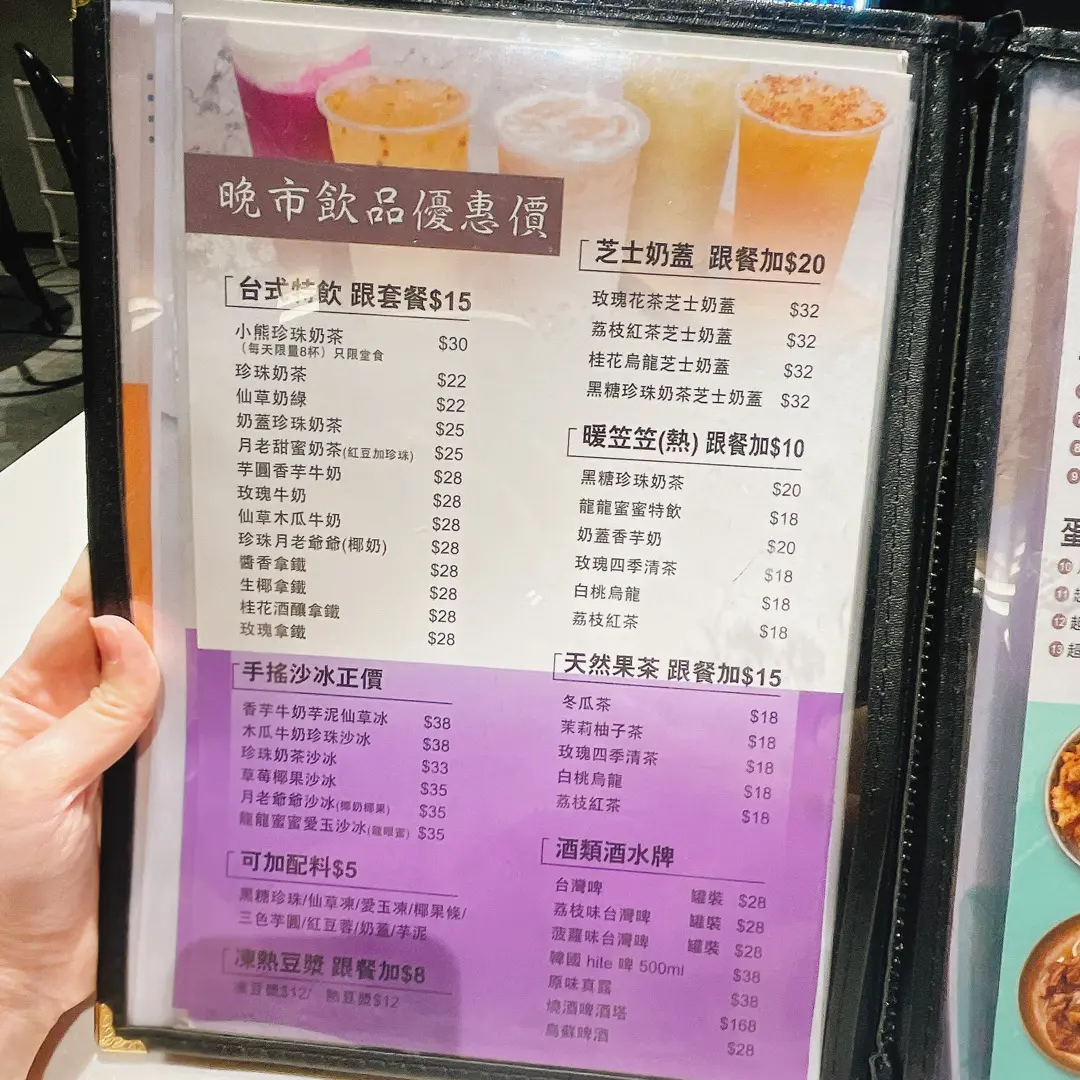 晚市飲品優惠價
台式特飲 跟套餐$15
小熊珍珠奶茶 $30
（每天限量8杯）只限堂食
珍珠奶茶 $22
仙草奶綠 $22
奶蓋珍珠奶茶 $25
月老甜蜜奶茶(紅豆加珍珠) $25
芋圓香芋牛奶 $28
玫瑰牛奶 $28
仙草木瓜牛奶 $28
珍珠月老爺爺(椰奶) $28
醬香拿鐵 $28
生椰拿鐵 $28
桂花酒釀拿鐵 $28
玫瑰拿鐵 $28
手搖沙冰正價
香芋牛奶芋泥仙草冰 $38
木瓜牛奶珍珠沙冰 $38
珍珠奶茶沙冰 $33
草莓椰果沙冰 $35
月老爺爺沙冰(椰奶椰果) $35
龍龍蜜蜜愛玉沙冰(龍眼蜜) $35
可加配料$5
黑糖珍珠/仙草凍/愛玉凍/椰果條/
三色芋圓/紅豆蓉/奶蓋/芋泥
凍熱豆漿 跟餐加$8
凍豆漿$12/ 熱豆漿$12
芝士奶蓋 跟餐加$20
玫瑰花茶芝士奶蓋 $32
荔枝紅茶芝士奶蓋 $32
桂花烏龍芝士奶蓋 $32
黑糖珍珠奶茶芝士奶蓋 $32
暖笠笠(熱) 跟餐加$10
黑糖珍珠奶茶 $20
龍龍蜜蜜特飲 $18
奶蓋香芋奶 $20
玫瑰四季清茶 $18
白桃烏龍 $18
荔枝紅茶 $18
天然果茶 跟餐加$15
冬瓜茶 $18
茉莉柚子茶 $18
玫瑰四季清茶 $18
白桃烏龍 $18
荔枝紅茶 $18
酒類酒水牌
台灣啤 罐裝 $28
荔枝味台灣啤 罐裝 $28
菠蘿味台灣啤 罐裝 $28
韓國 hite 啤 500ml $38
原味真露 $38
燒酒啤酒塔 $168
烏蘇啤酒 $28
9
蛋
10
11 超
12 超
13 超